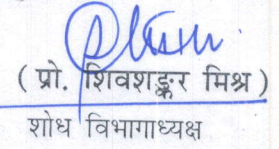 ( प्रो. शिवशङ्कर मिश्र )
शोध विभागाध्यक्ष